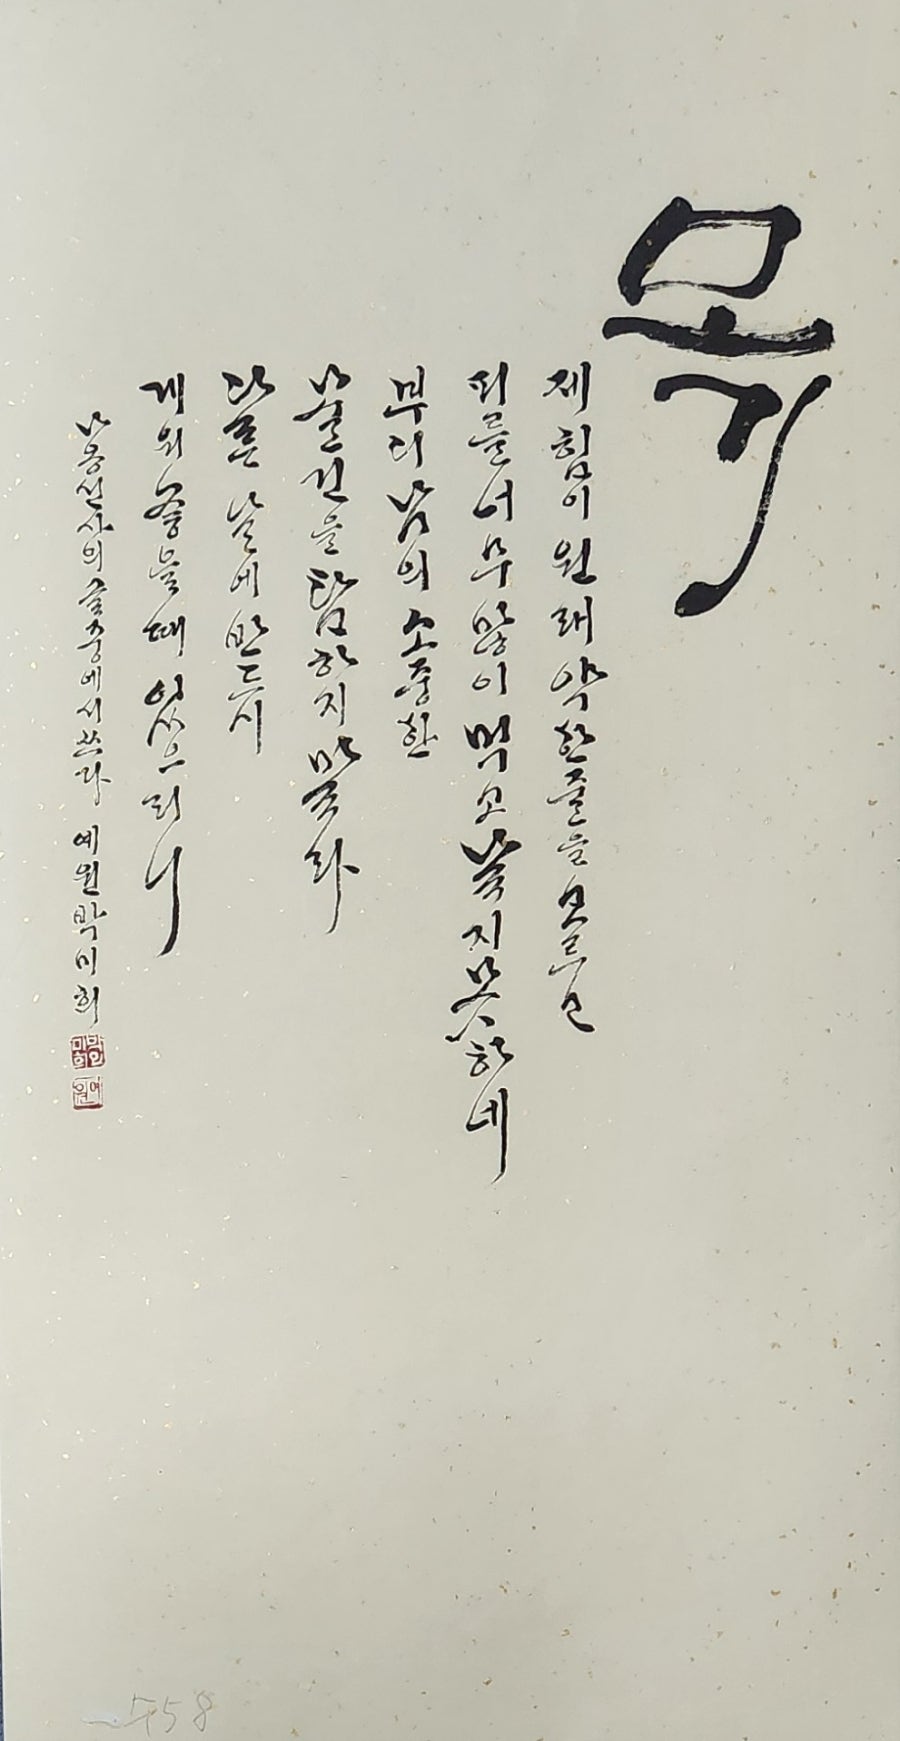 모기
제 힘이 원래 약한줄을 모르고
피를 너무 많이 먹고 날지못하네
부디 남의 소중한
물건을 탐하지 말라
다른 날에 반드시
게워줄 때 있으리니
나옹선사의 글 중에서 쓰다 예원 박미희
박미희인
예원
758